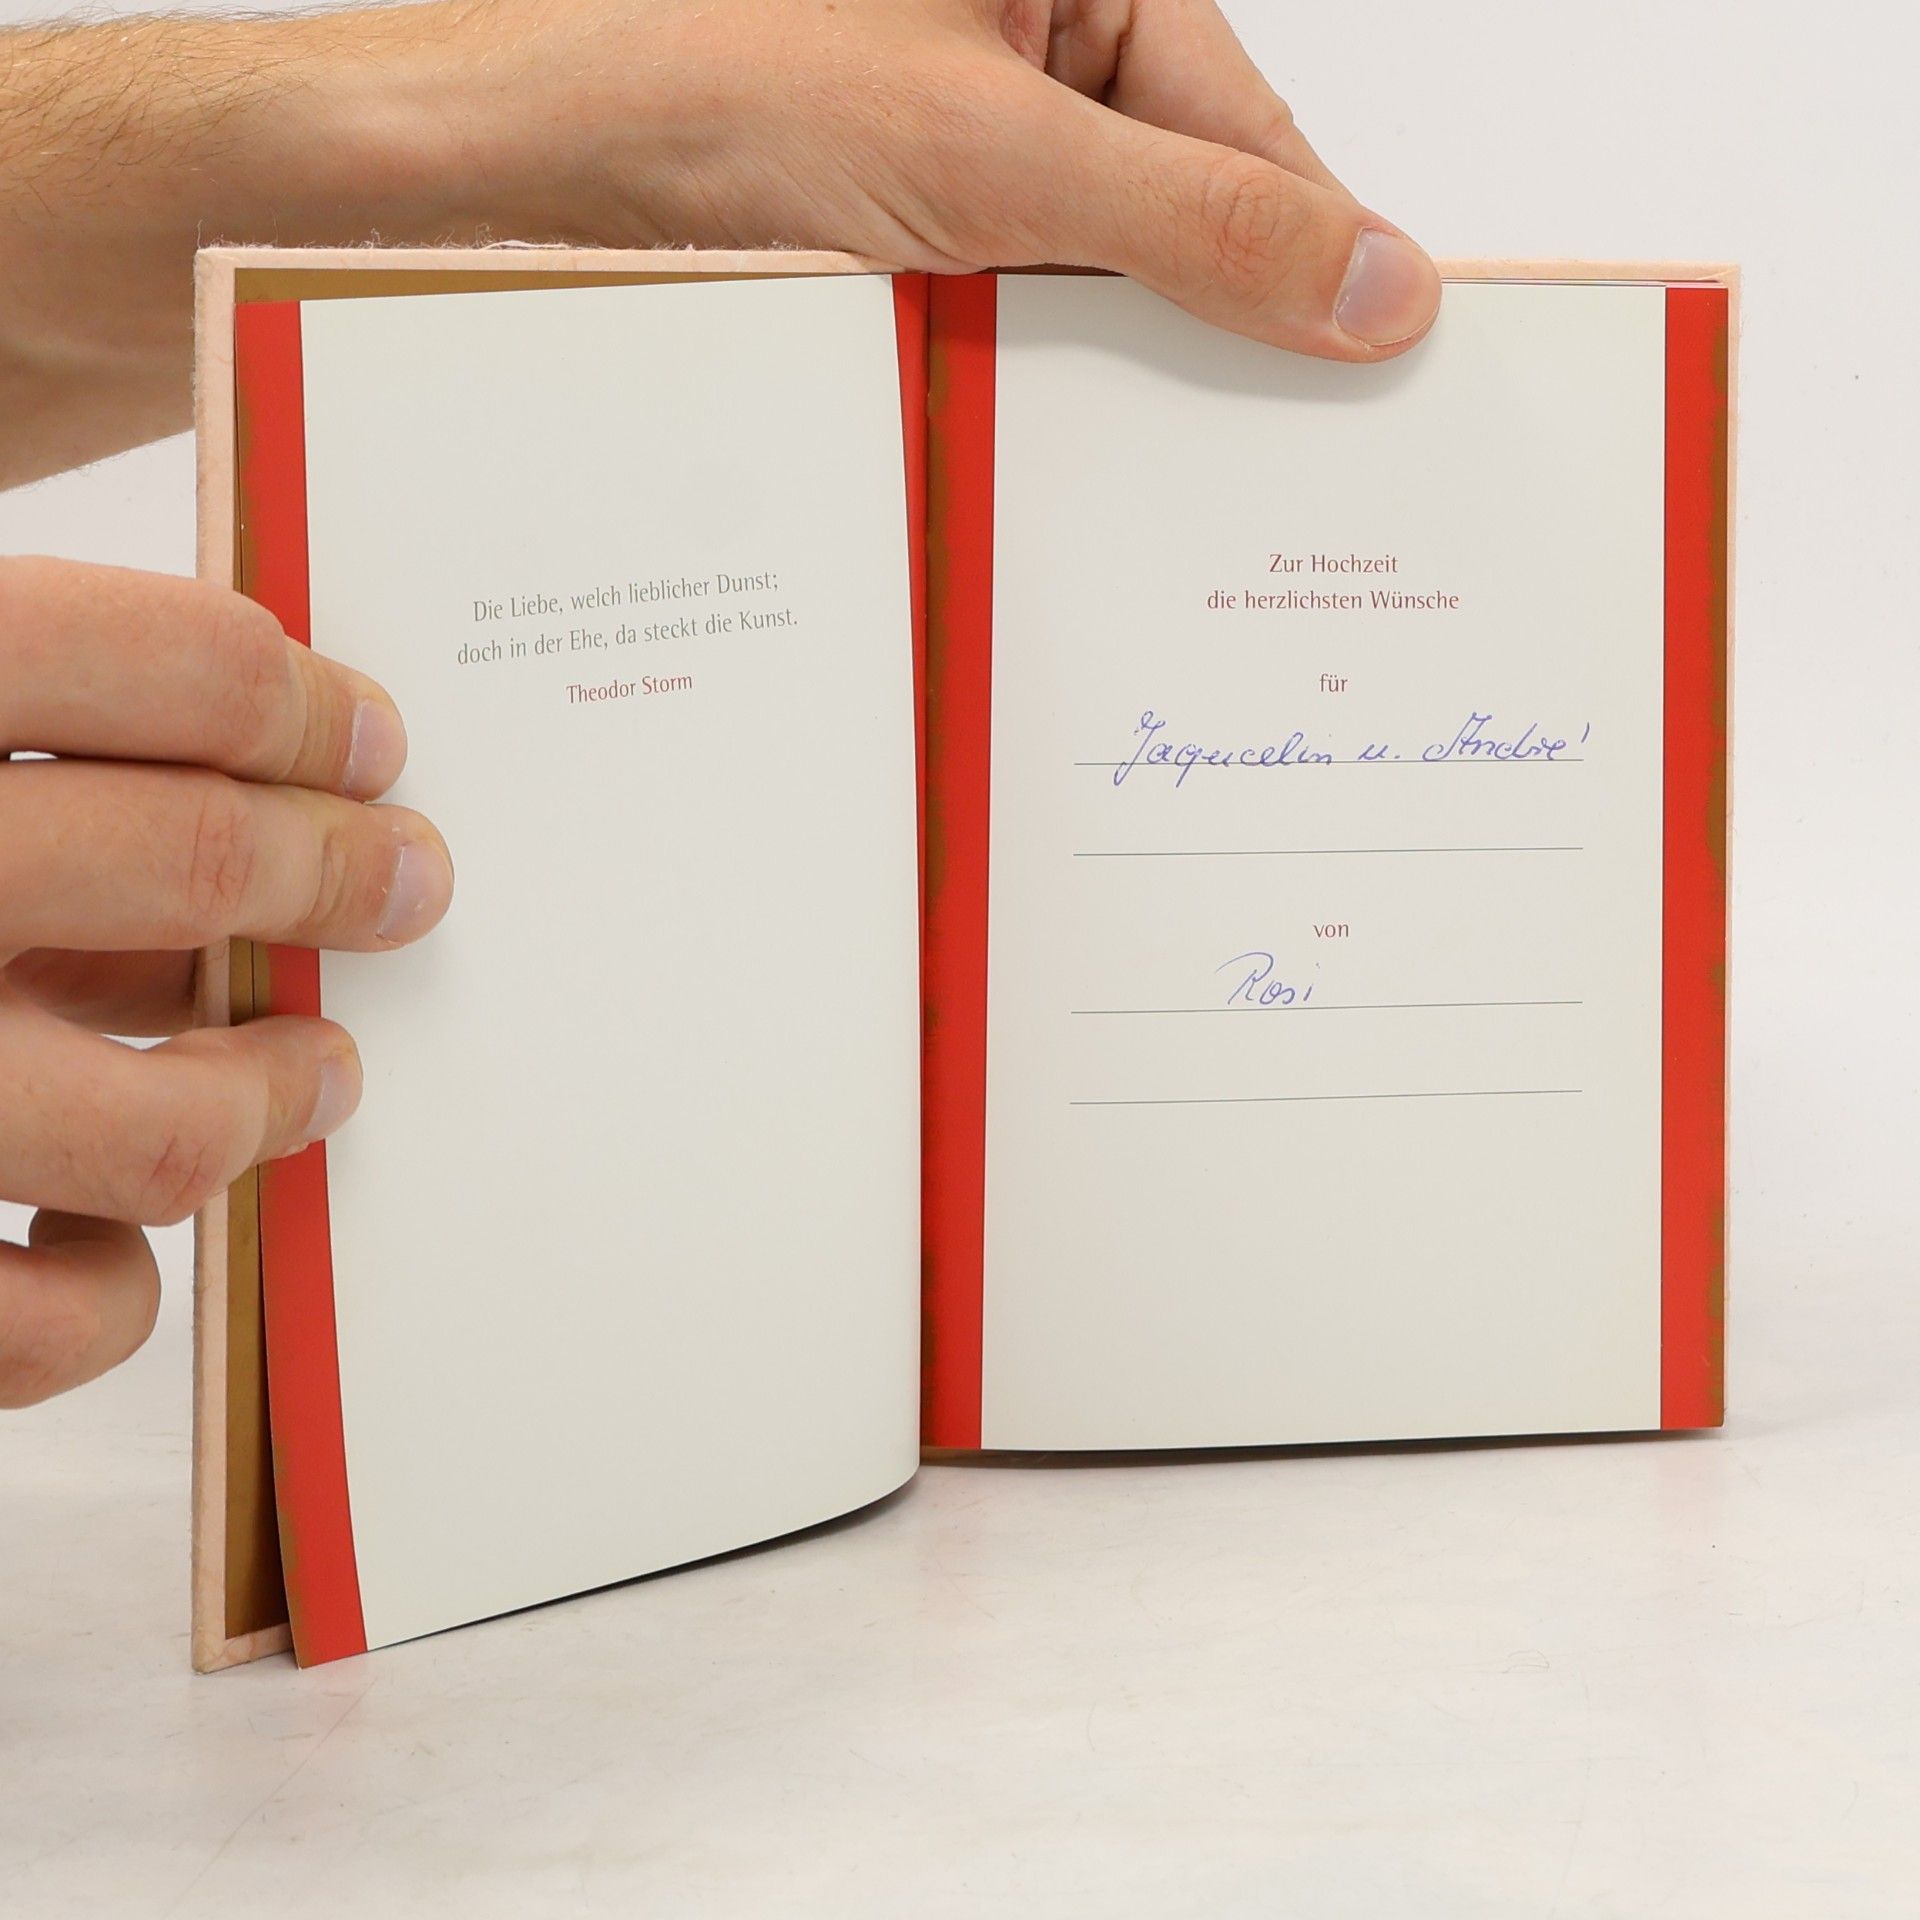 Die Liebe, welch lieblicher Dunst;
doch in der Ehe, da steckt die Kunst.
Theodor Storm
Zur Hochzeit
die herzlichsten Wünsche
für
Jaquelin u. André
von
Rosi